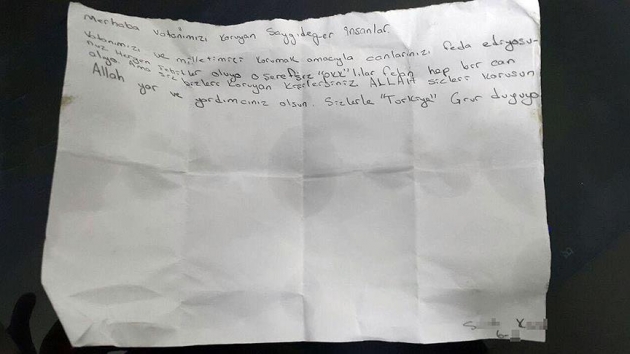 Merhaba vatanımızı koruyan saygıdeğer insanlar
Vatanımızı ve milletimizi korumak amacıyla canlarınızı feda ediyosu-
nuz hergen şehitler oluyo o şerefsiz "PKK" lılar felan hep bir can
alıyo. Ama siz bizleri koruyan kişilersiniz ALLAH sizleri korusun
Allah yar ve yardımcınız olsun. Sizlerle "Türkiye" Grur duyuyo